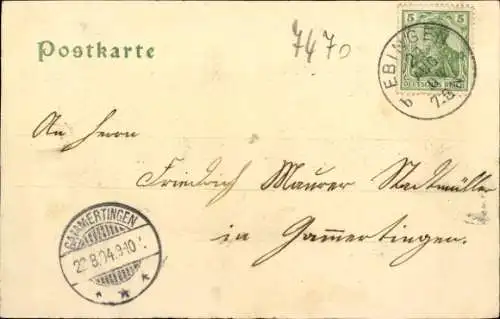 7470
5 5
Postkarte
DEUTSCHES REICH
EBINGEN
An Herrn
Friedrich Maurer Stadtmüller
in Gammertingen.
GAMMERTINGEN
8.04.